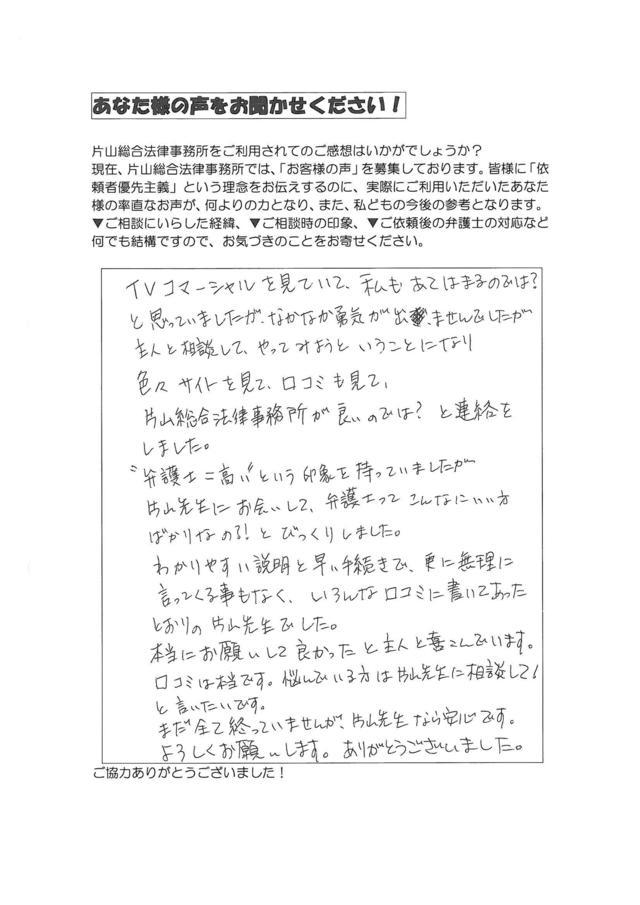 あなた様の声をお聞かせください！
片山総合法律事務所をご利用されてのご感想はいかがでしょうか？
現在、片山総合法律事務所では、「お客様の声」を募集しております。皆様に「依
頼者優先主義」という理念をお伝えするのに、実際にご利用いただいたあなた
様の率直なお声が、何よりの力となり、また、私どもの今後の参考となります。
▼ご相談にいらした経緯、▼ご相談時の印象、▼ご依頼後の弁護士の対応など
何でも結構ですので、お気づきのことをお寄せください。
TVコマーシャルを見ていて、私もあてはまるのでは？
と思っていましたが、なかなか勇気が出ませんでしたが
主人と相談して、やってみようということになり
色々サイトを見て、口コミも見て、
片山総合法律事務所が良いのでは？と連絡を
しました。
"弁護士＝高い"という印象を持っていましたが
片山先生にお会いして、弁護士ってこんなにいい方
ばかりなの?!とびっくりしました。
わかりやすい説明と早い手続きで、更に無理に
言ってくる事もなく、いろんな口コミに書いてあった
とおりの片山先生でした。
本当にお願いして良かったと主人と喜こんでいます。
口コミは本当です。悩んでいる方は片山先生に相談して！
と言いたいです。
まだ全て終っていませんが、片山先生なら安心です。
よろしくお願いします。ありがとうございました。
ご協力ありがとうございました！